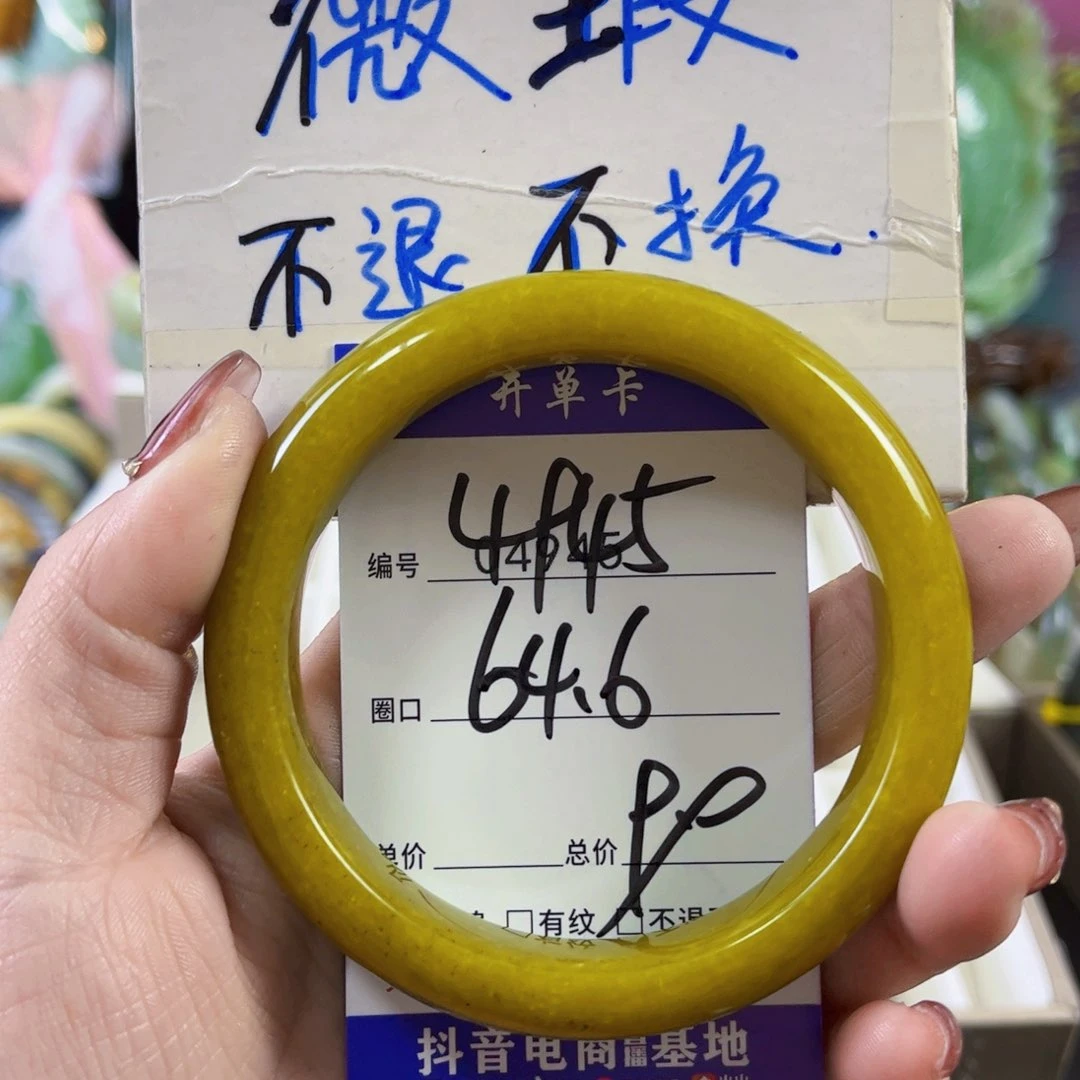 微瑕
不退不换..
开单卡
4945
编号 04945
圈口 64.6
单价 总价
有纹 不退
抖音电商直播基地